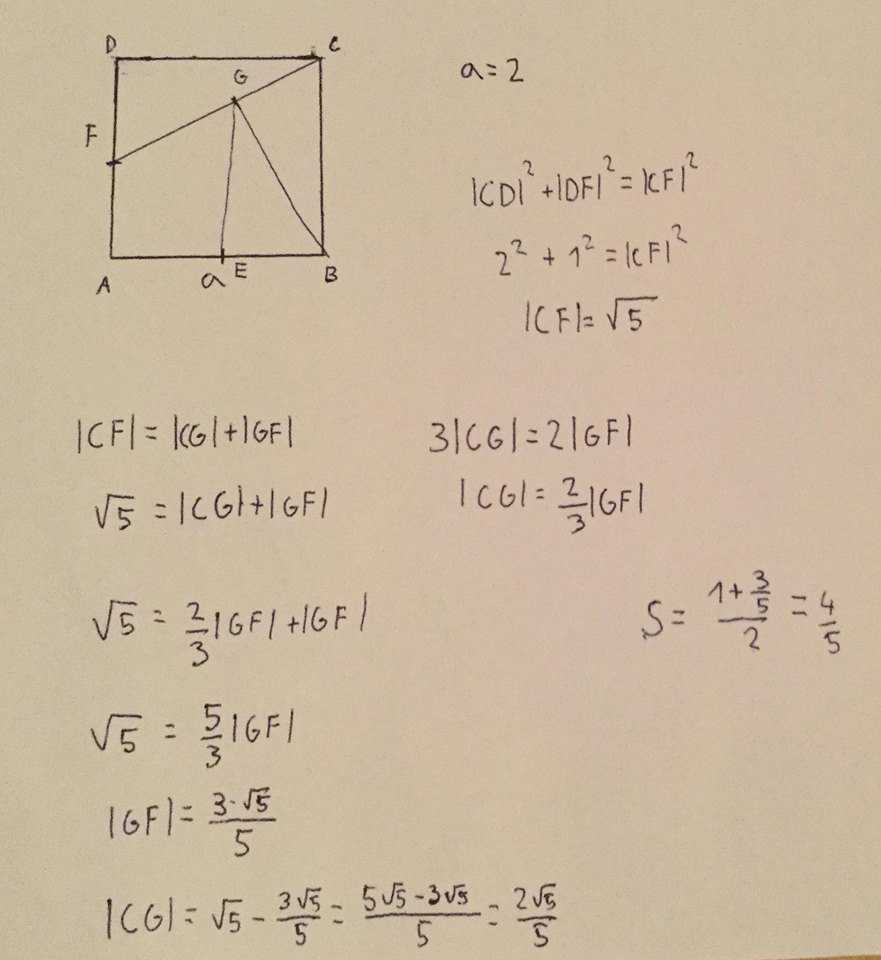 D C
G
F
A a E B
a = 2
|CD|² + |DF|² = |CF|²
2² + 1² = |CF|²
|CF| = √5
|CF| = |CG| + |GF|
3|CG| = 2|GF|
√5 = |CG| + |GF|
|CG| = 2/3 |GF|
√5 = 2/3 |GF| + |GF|
S = (1 + 3/5)/2 = 4/5
√5 = 5/3 |GF|
|GF| = (3·√5)/5
|CG| = √5 - (3√5)/5 = (5√5 - 3√5)/5 = (2√5)/5